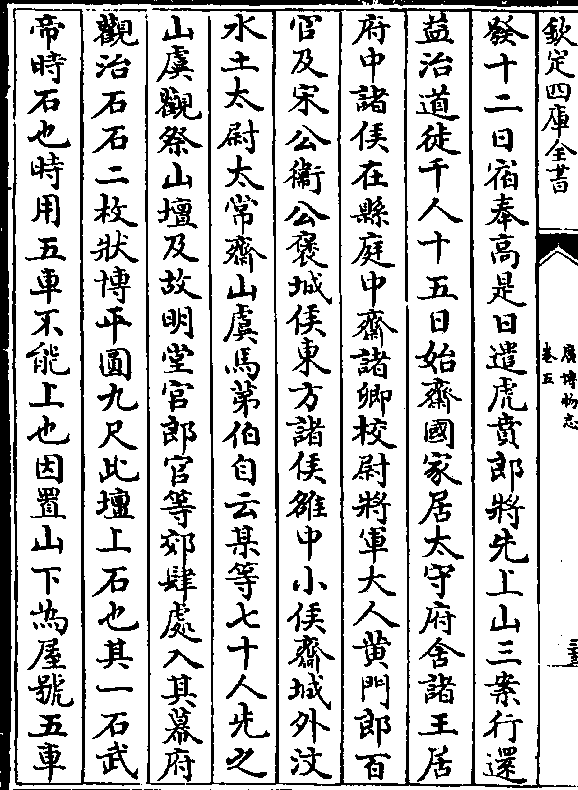 欽定四庫全書
廣博物志
卷五
發十二日宿奉高是日遣虎賁郎將先上山三案行還
益治道徒千人十五日始齋國家居太守府舍諸王居
府中諸侯在縣庭中齋諸卿校尉將軍大人黄門郎百
官及宋公衞公褒城侯東方諸侯雒中小侯齋城外汶
水土太尉太常齋山虞馬第伯自云某等七十人先之
山虞觀祭山壇及故明堂宫郎官等郊肆處入其幕府
觀治石石二枚狀博平圓九尺此壇上石也其一石武
帝時石也時用五車不能上也因置山下為屋號五車